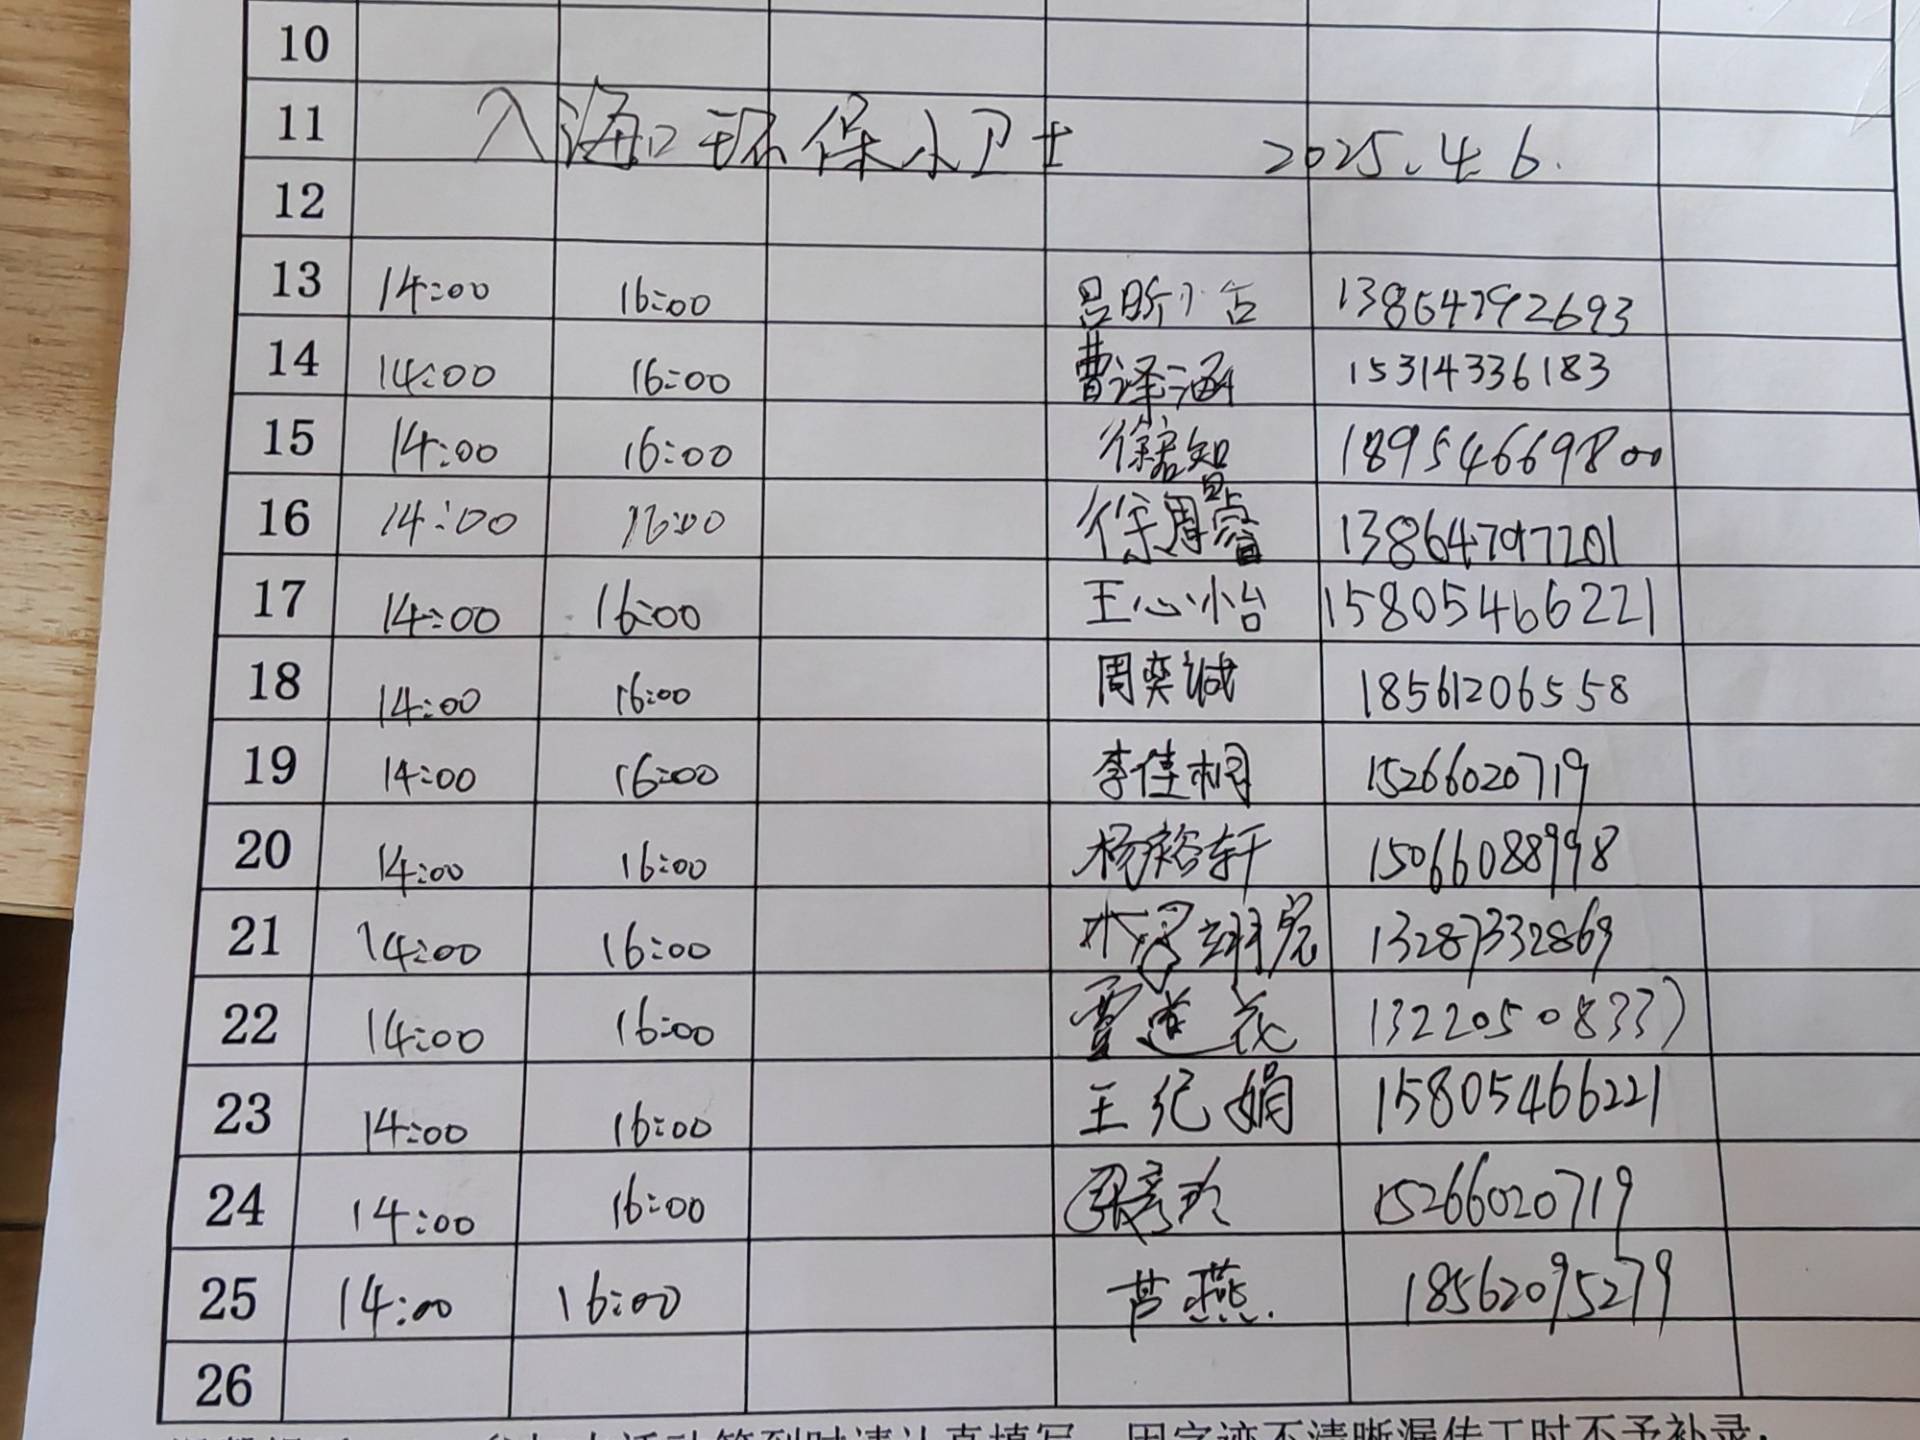 10
11 入海口环保小卫士 2025.4.6.
12
13 14:00 16:00 13864792693
14 14:00 16:00 曹译涵 15314336183
15 14:00 16:00 18954669800
16 14:00 16:00 徐周睿 13864797201
17 14:00 16:00 王心怡 15805466221
18 14:00 16:00 周奕诚 18561206558
19 14:00 16:00 李佳桐 15266020719
20 14:00 16:00 杨裕轩 15066088998
21 14:00 16:00 13287332869
22 14:00 16:00 贾莲花 13220508337
23 14:00 16:00 王纪娟 15805466221
24 14:00 16:00 15266020719
25 14:00 16:00 芦燕. 18562095279
26